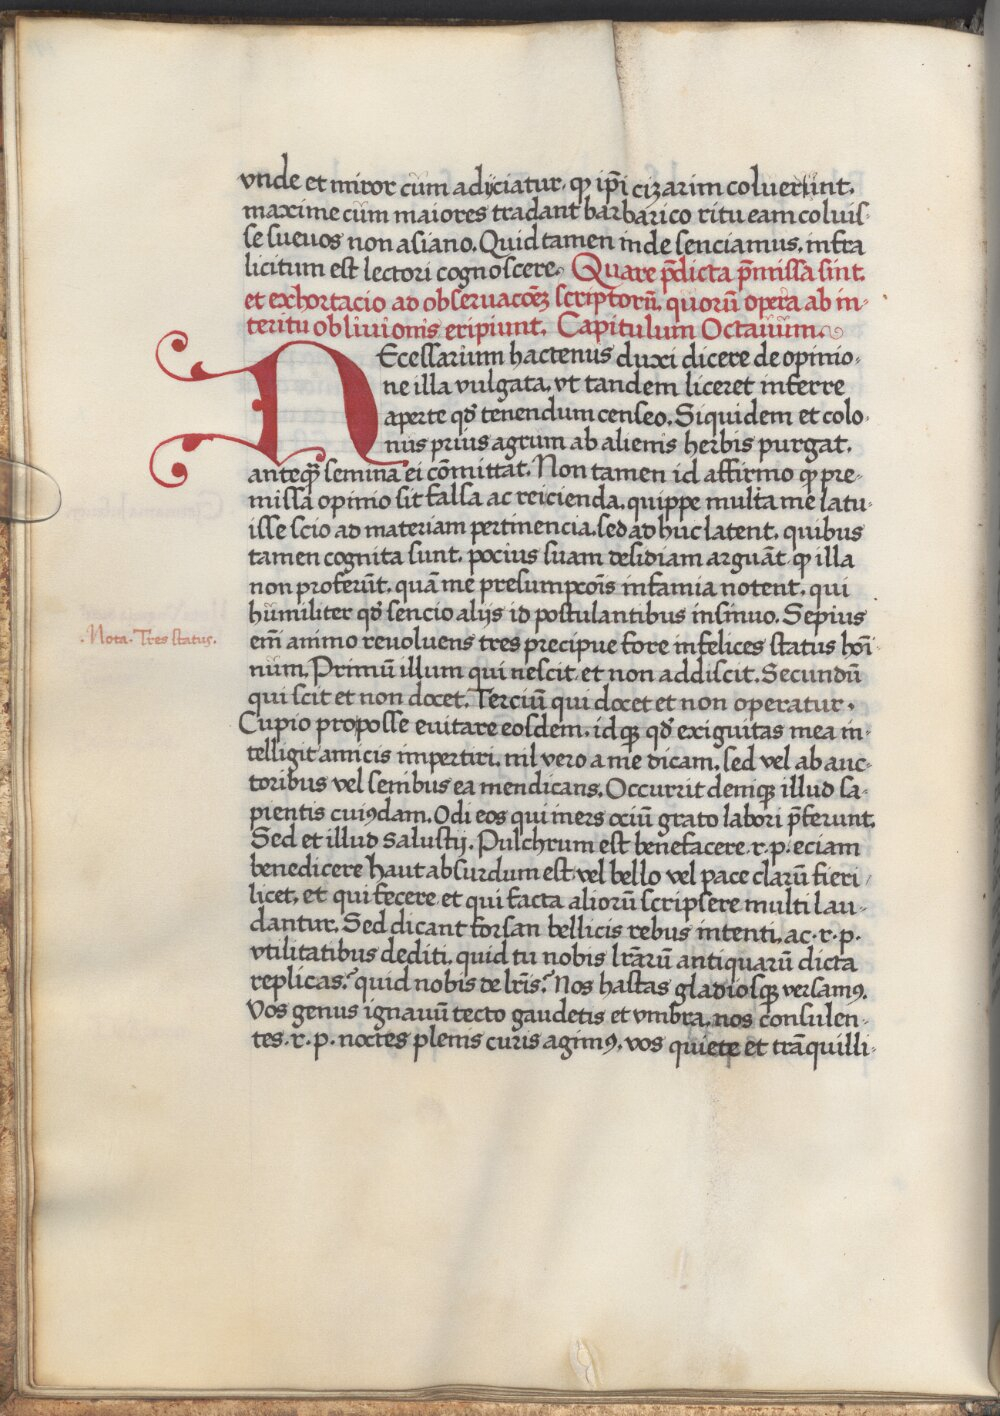 vnde et miror cum adijciatur, qꝫ ip̄i cizarim coluerunt,
maxime cum maiores tradant barbarico ritu eam coluis-
se sueuos non asiano. Quid tamen inde senciamus, infra
licitum est lectori cognoscere. Quare p̄dicta p̄missa sint,
et exhortacio ad obseruacōeꝫ scriptorū, quorū opera ab in-
teritu obliuionis eripiunt. Capitulum Octauum.
NEcessarium hactenus duxi dicere de opinio-
ne illa vulgata, vt tandem liceret inferre
aperte qd̄ tenendum censeo. Siquidem et colo-
nus prius agrum ab alienis herbis purgat,
anteqꝫ̄ semina ei cōmittat. Non tamen id affirmo qꝫ pre-
missa opinio sit falsa ac reicienda, quippe multa me latu-
isse scio ad materiam pertinencia, sed adhuc latent, quibus
tamen cognita sunt, pocius suam desidiam arguāt qꝫ illa
non proferūt, quā me presumpcōis infamia notent, qui
humiliter qd̄ sencio alijs id postulantibus insinuo. Sepius
em̄ animo reuoluens tres precipue fore infelices status hoī
.Nota. Tres status.
num. Primū illum qui nescit et non addiscit. Secundū
qui scit et non docet. Terciū qui docet et non operatur.
Cupio proposse euitare eosdem, idqꝫ qd̄ exiguitas mea in-
telligit amicis impertiri, nil vero a me dicam, sed vel ab auc-
toribus vel senibus ea mendicans. Occurrit deniqꝫ illud sa-
pientis cuiꝰdam. Odi eos qui iners ociū grato labori p̄ferunt.
Sed et illud Salustij. Pulchrum est benefacere .r.p. eciam
benedicere haut absurdum est, vel bello vel pace clarū fieri
licet, et qui fecere et qui facta aliorū scripsere multi lau-
dantur. Sed dicant forsan bellicis rebus intenti, ac .r.p.
vtilitatibus dediti, quid tu nobis lr̄arū antiquarū dicta
replicas? quid nobis de lr̄is? Nos hastas gladiosqꝫ versamꝰ.
Vos genus ignauū tecto gaudetis et vmbra, nos consulen-
tes .r.p. noctes plenis curis agimꝰ, vos quiete et trāquilli-